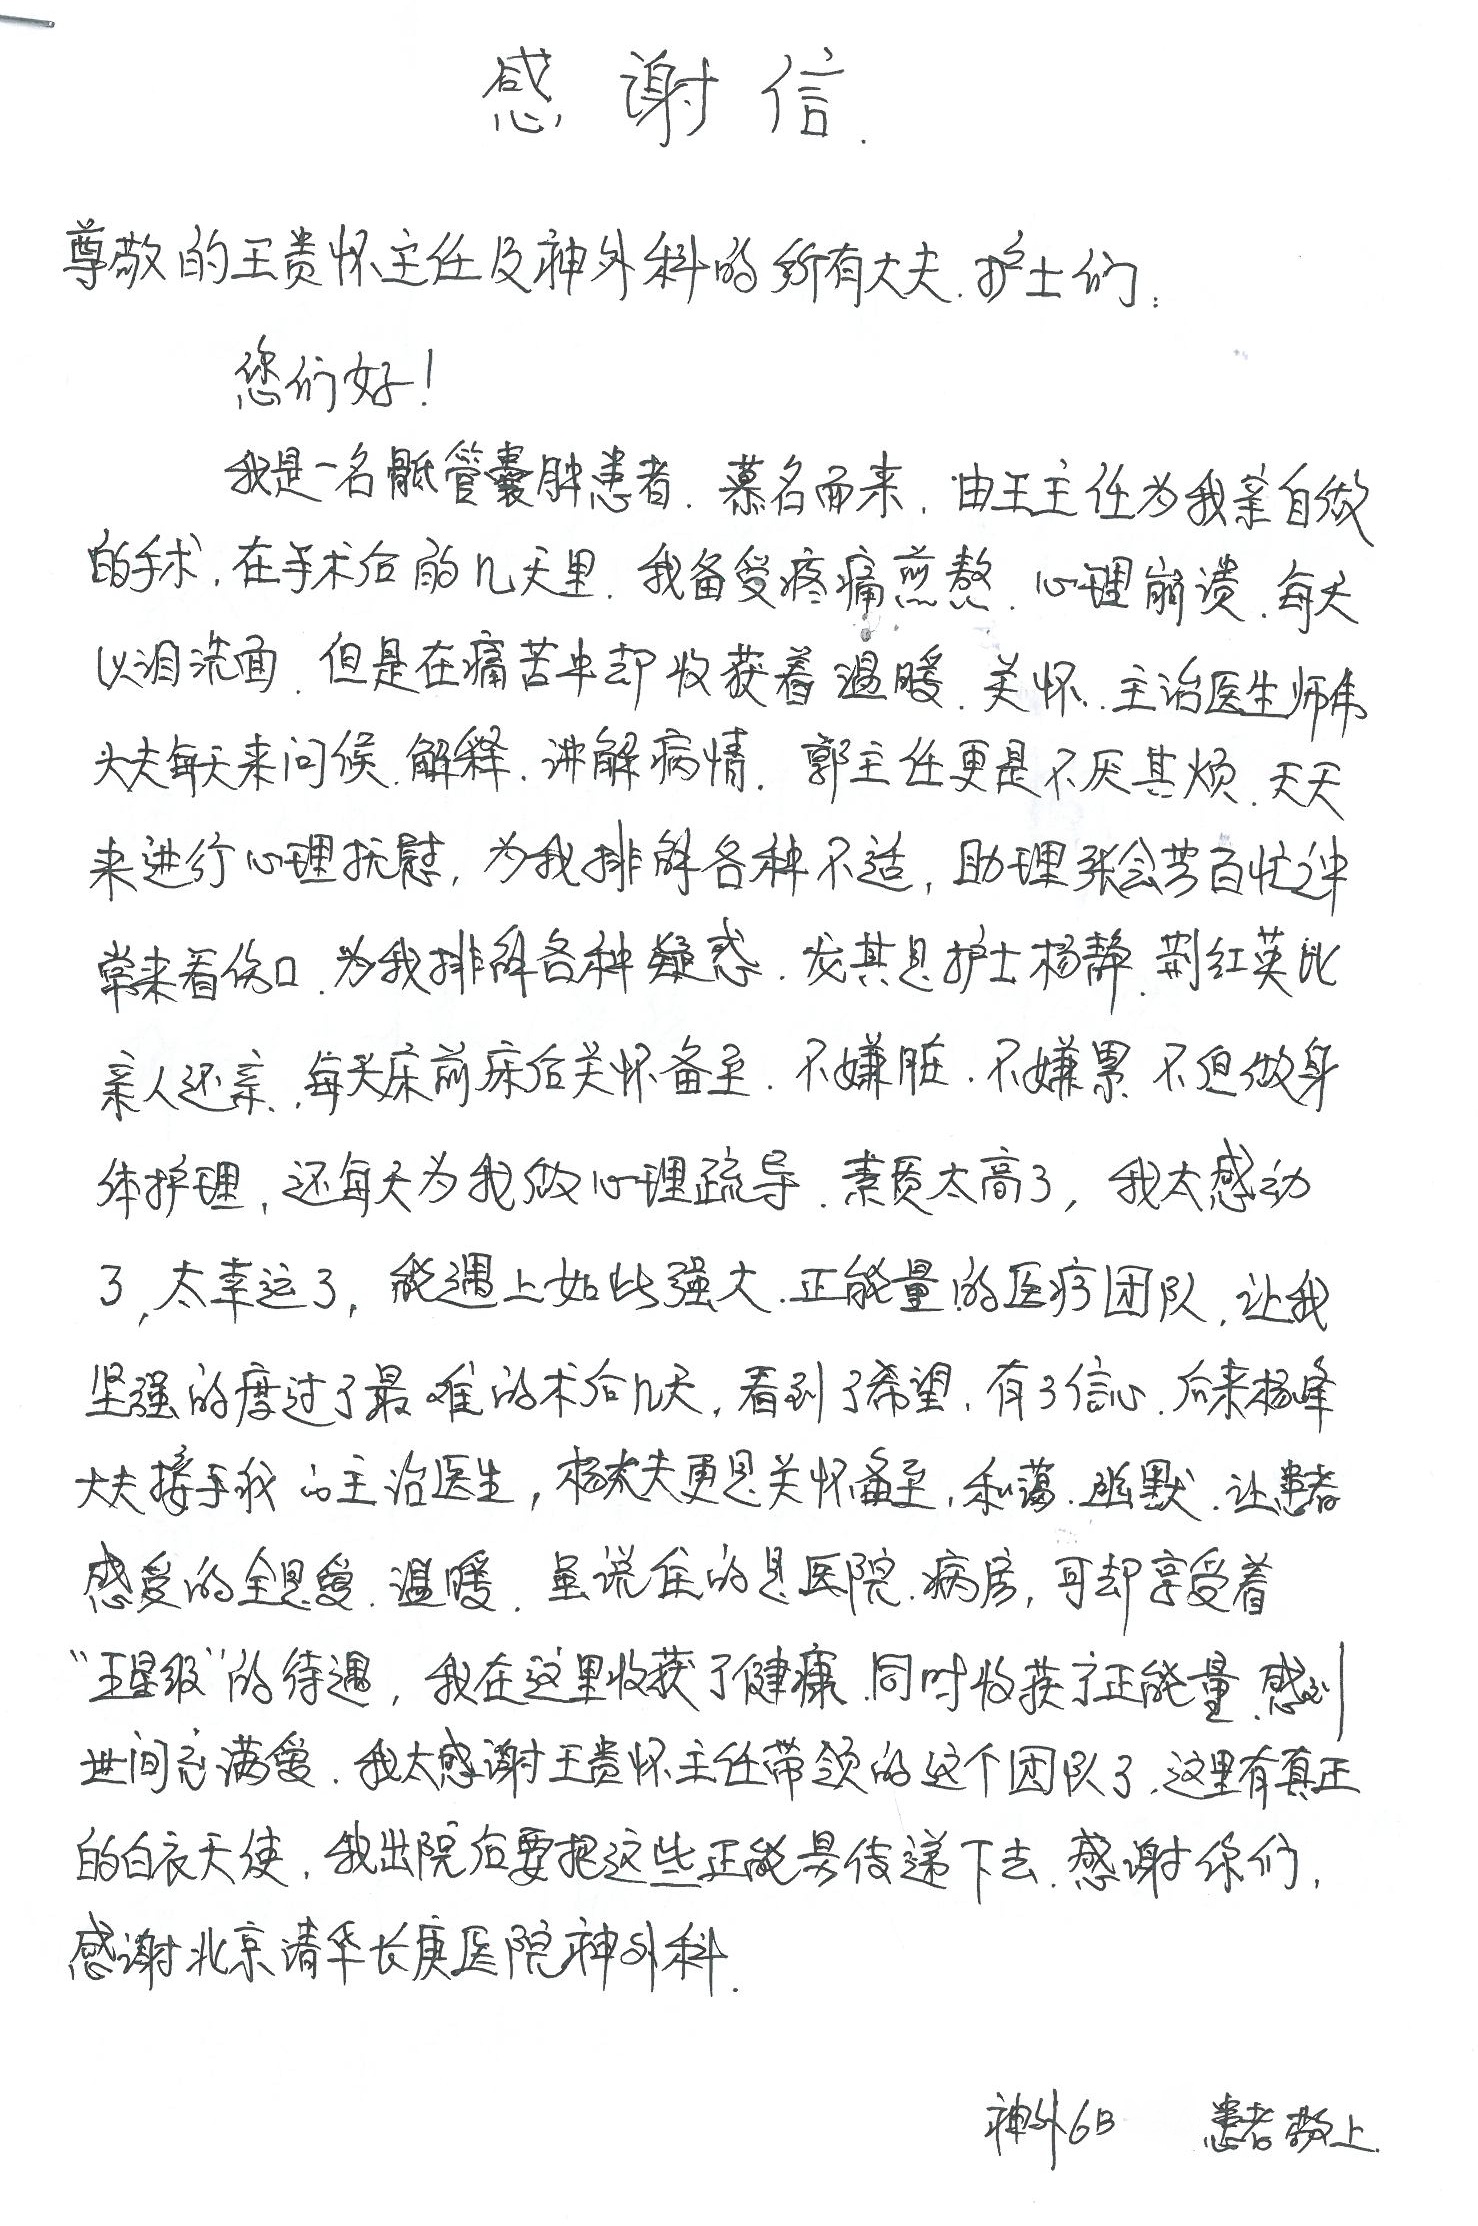 感谢信.
尊敬的王贵怀主任及神外科的所有大夫.护士们:
您们好!
我是一名骶管囊肿患者.慕名而来,由王主任为我亲自做
的手术,在手术后的几天里.我备受疼痛煎熬.心理崩溃.每天
以泪洗面.但是在痛苦中却收获着温暖.关怀.主治医生师伟
大夫每天来问候.解释.讲解病情.郭主任更是不厌其烦.天天
来进行心理抚慰,为我排解各种不适,助理张会芳百忙之中
常来看伤口.为我排解各种疑惑.尤其是护士杨静.荆红英比
亲人还亲.,每天床前床后关怀备至.不嫌脏.不嫌累.不但做身
体护理,还每天为我做心理疏导.素质太高了,我太感动
了,太幸运了,能遇上如此强大.正能量的医疗团队,让我
坚强的度过了最难的术后几天,看到了希望,有了信心.后来杨峰
大夫接手我的主治医生,杨大夫更是关怀备至,和蔼.幽默.让患者
感受的全是爱.温暖.虽说住的是医院.病房,可却享受着
“五星级”的待遇,我在这里收获了健康.同时收获了正能量.感到
世间充满爱.我太感谢王贵怀主任带领的这个团队了.这里有真正
的白衣天使,我出院后要把这些正能量传递下去.感谢你们,
感谢北京清华长庚医院神外科.
神外6B 患者敬上.